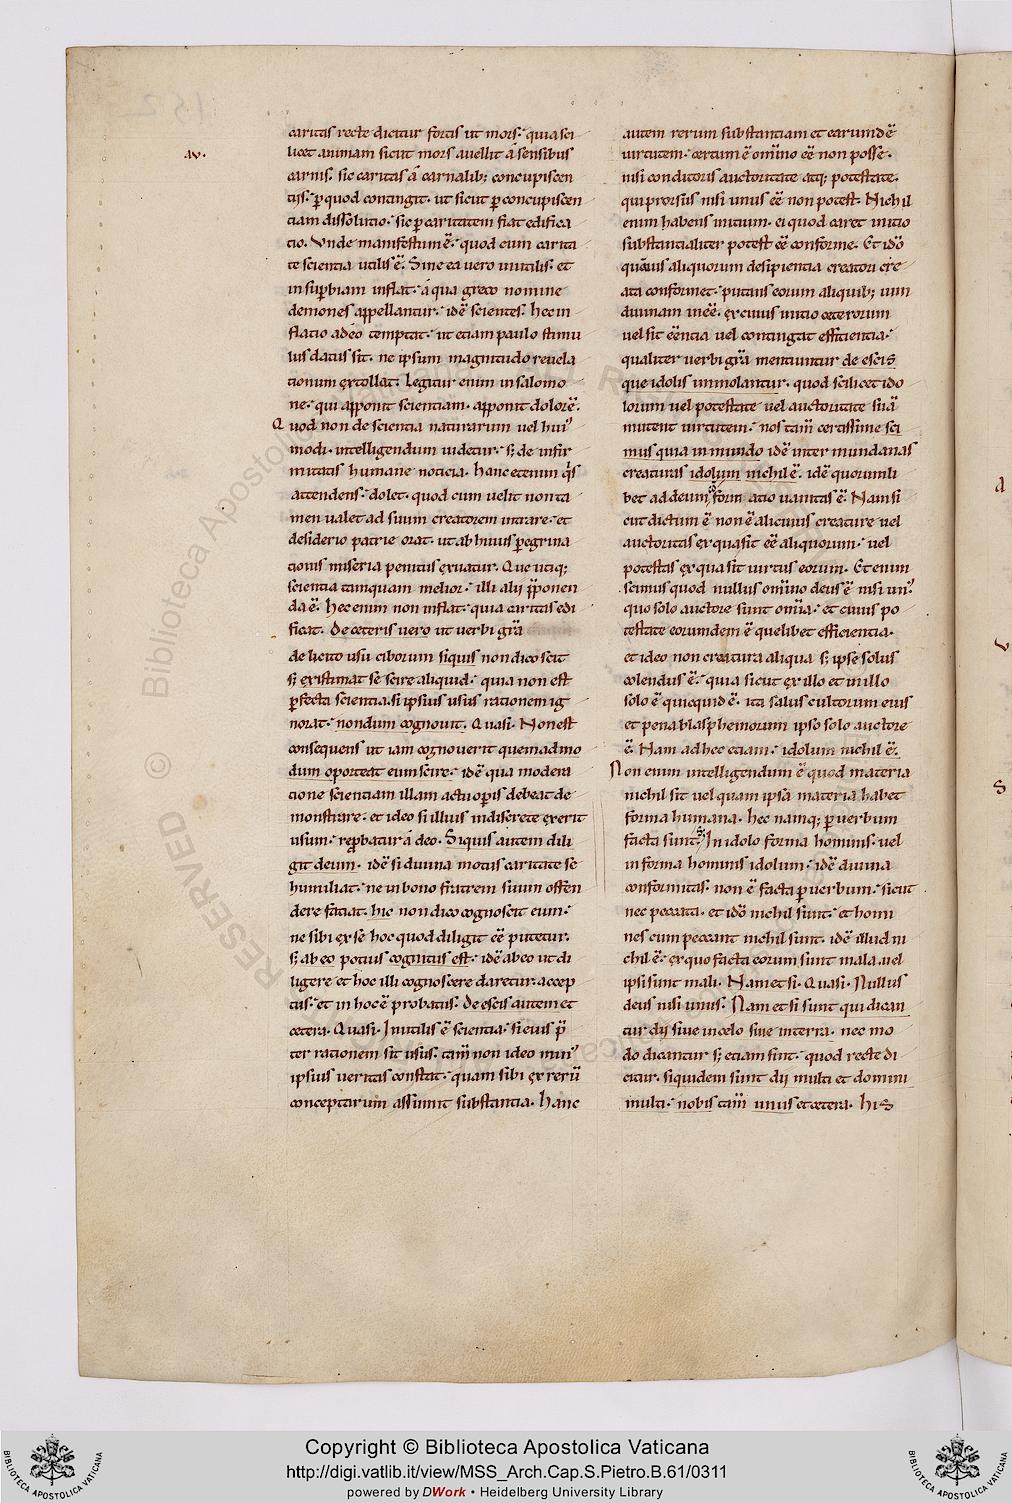 av.
caritas recte dicitur fortis ut mors. quia sci
licet animam sicut mors auellit a᷃ sensibus
carnis. sic caritas a᷃ carnalib; concupiscen
tijs. ꝑ quod contingit. ut sicut ꝑ concupiscen
tiam dissolutio. sic ꝑ caritatem fiat edifica
tio. Vnde manifestum ē. quod cum carita
te scientia utilis ē. Sine ea uero inutilis. et
in suꝑbiam inflat. a qua greco nomine
demones appellantur. idē scientes. hec in
flatio adeo temptat. ut etiam paulo stimu
lus datus sit. ne ipsum magnitudo reuela
tionum extollat. Legitur enim in salomo
ne. qui apponit scientiam. apponit dolorē.
Quod non de scientia naturarum uel hui᾽
modi. intelligendum uidetur. s; de infir
mitatis humane noticia. hanc etenim q̇s
attendens. dolet. quod cum uelit non ta
men ualet ad suum creatorem intrare. et
desiderio patrie orat. ut ab huius ꝑegrina
tionis miseria penitus exuatur. Que utiq;
scientia tamquam melior. illi alij p̄ponen
da ē. hec enim non inflat. quia caritas edi
ficat. De ceteris uero ut uerbi gr̄a
de licito usu ciborum siquis non dico scit
s; existimat se scire aliquid. quia non est
ꝑfecta scientia. si ipsius usus rationem ig
norat. nondum cognouit. Quasi. Non est
consequens ut iam cognouerit quemadmo
dum oporteat eum scire. idē qua modera
tione scientiam illam actu oꝑis debeat de
monstrare. et ideo si illius indiscrete exerit
usum. reprobatur a᷃ deo. Siquis autem dili
git deum. idē si diuina motus caritate se
humiliat. ne in bono fratrem suum offen
dere faciat. hic non dico cognoscit eum.
ne sibi ex se hoc quod diligit ēē putetur.
s; ab eo potius cognitus est. idē ab eo ut di
ligere et hoc illi cognoscere daretur. accep
tus. et in hoc ē probatus. De escis autem et
cetera. Quasi. Inutilis ē scientia. si eius p̄
ter rationem sit usus. tam̄ non ideo min᾽
ipsius ueritas constat. quam sibi ex rerū
conceptarum assumit substantia. hanc
autem rerum substantiam et earumdē
uirtutem. certum ē om̄ino ēē non posse.
nisi conditoris auctoritate atq; potestate.
qui prorsus nisi unus ēē non potest. Nichil
enim habens initium. ei quod caret initio
substantialiter potest ēē conforme. Et ido̅
quāuis aliquorum desipientia creatori cre
ata conformet. putans eorum aliquib; uim
diuinam inēē. ex cuius initio ceterorum
uel sit ēēntia uel contingat efficientia.
qualiter uerbi gr̄a mentiuntur de escis
que idolis immolantur. quod scilicet ido
lorum uel potestate uel auctoritate suā
mutent uirtutem. nos tam̄ certissime sci
mus quia in mundo idē inter mundanas
creaturas idolum nichil ē. idē quorumli
bet ad deum form atio uanitas ē. Nam si
cut dictum ē non ē alicuius creature uel
auctoritas ex qua sit ēē aliquorum. uel
potestas ex qua sit uirtus eorum. Et enim
scimus quod nullus om̄ino deus ē nisi un᾽.
quo solo auctore sunt om̄ia. et cuius po
testate eorumdem ē quelibet efficientia.
et ideo non creatura aliqua s; ipse solus
colendus ē. quia sicut ex illo et in illo
solo ē quicquid ē. ita salus cultorum eius
et pena blasphemorum ipso solo auctore
ē. Nam ad hec etiam. idolum nichil ē.
Non enim intelligendum ē quod materia
nichil sit uel quam ipsa materia habet
forma humana. hec namq; ꝑ uerbum
facta sunt. s; In idolo forma hominis. uel
in forma hominis idolum. idē diuina
conformitas. non ē facta ꝑ uerbum. sicut
nec peccata. et ido̅ nichil sunt. et homi
nes cum peccant nichil sunt. idē illud ni
chil ē. ex quo facta eorum sunt mala. uel
ipsi sunt mali. Nam et si. Quasi. Nullus
deus nisi unus. Nam et si sunt qui dican
tur dij siue in celo siue in terra. nec mo
do dicantur s; etiam sint. quod recte di
citur. siquidem sunt dij multi et domini
multi. nobis tam̄ unus et cetera. his
Copyright © Biblioteca Apostolica Vaticana
http://digi.vatlib.it/view/MSS_Arch.Cap.S.Pietro.B.61/0311
powered by DWork • Heidelberg University Library
BIBLIOTECA APOSTOLICA VATICANA
BIBLIOTECA APOSTOLICA VATICANA